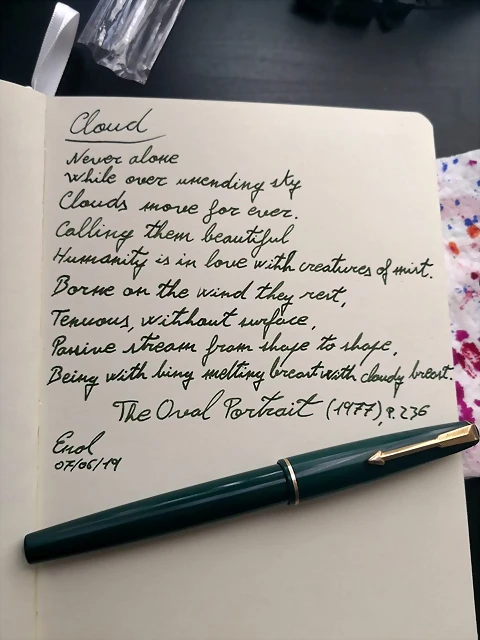 Cloud
Never alone
While over unending sky
Clouds move for ever.
Calling them beautiful
Humanity is in love with creatures of mist.
Borne on the wind they rest,
Tenuous, withhout surface,
Passive stream from shape to shape,
Being with bing melting breast with cloudy breast.
The Oval Portrait (1977), P. 236
Enol
07/06/19